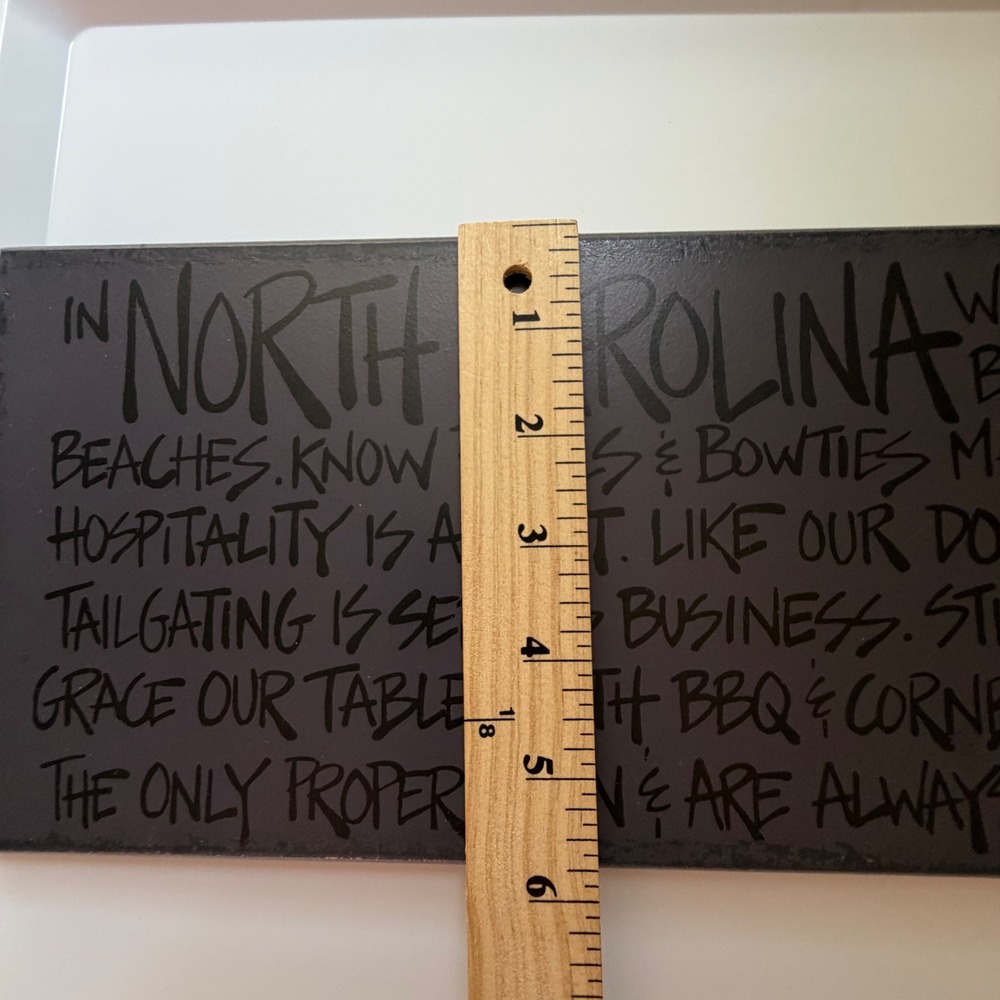 IN NORTH ROLINA
BEACHES. KNOW S & BOWTIES
HOSPITALITY IS A T. LIKE OUR DO
TAILGATING IS SE BUSINESS. ST
GRACE OUR TABLE TH BBQ & CORNE
THE ONLY PROPER N & ARE ALWAYS
1
2
3
4
1/8
5
6